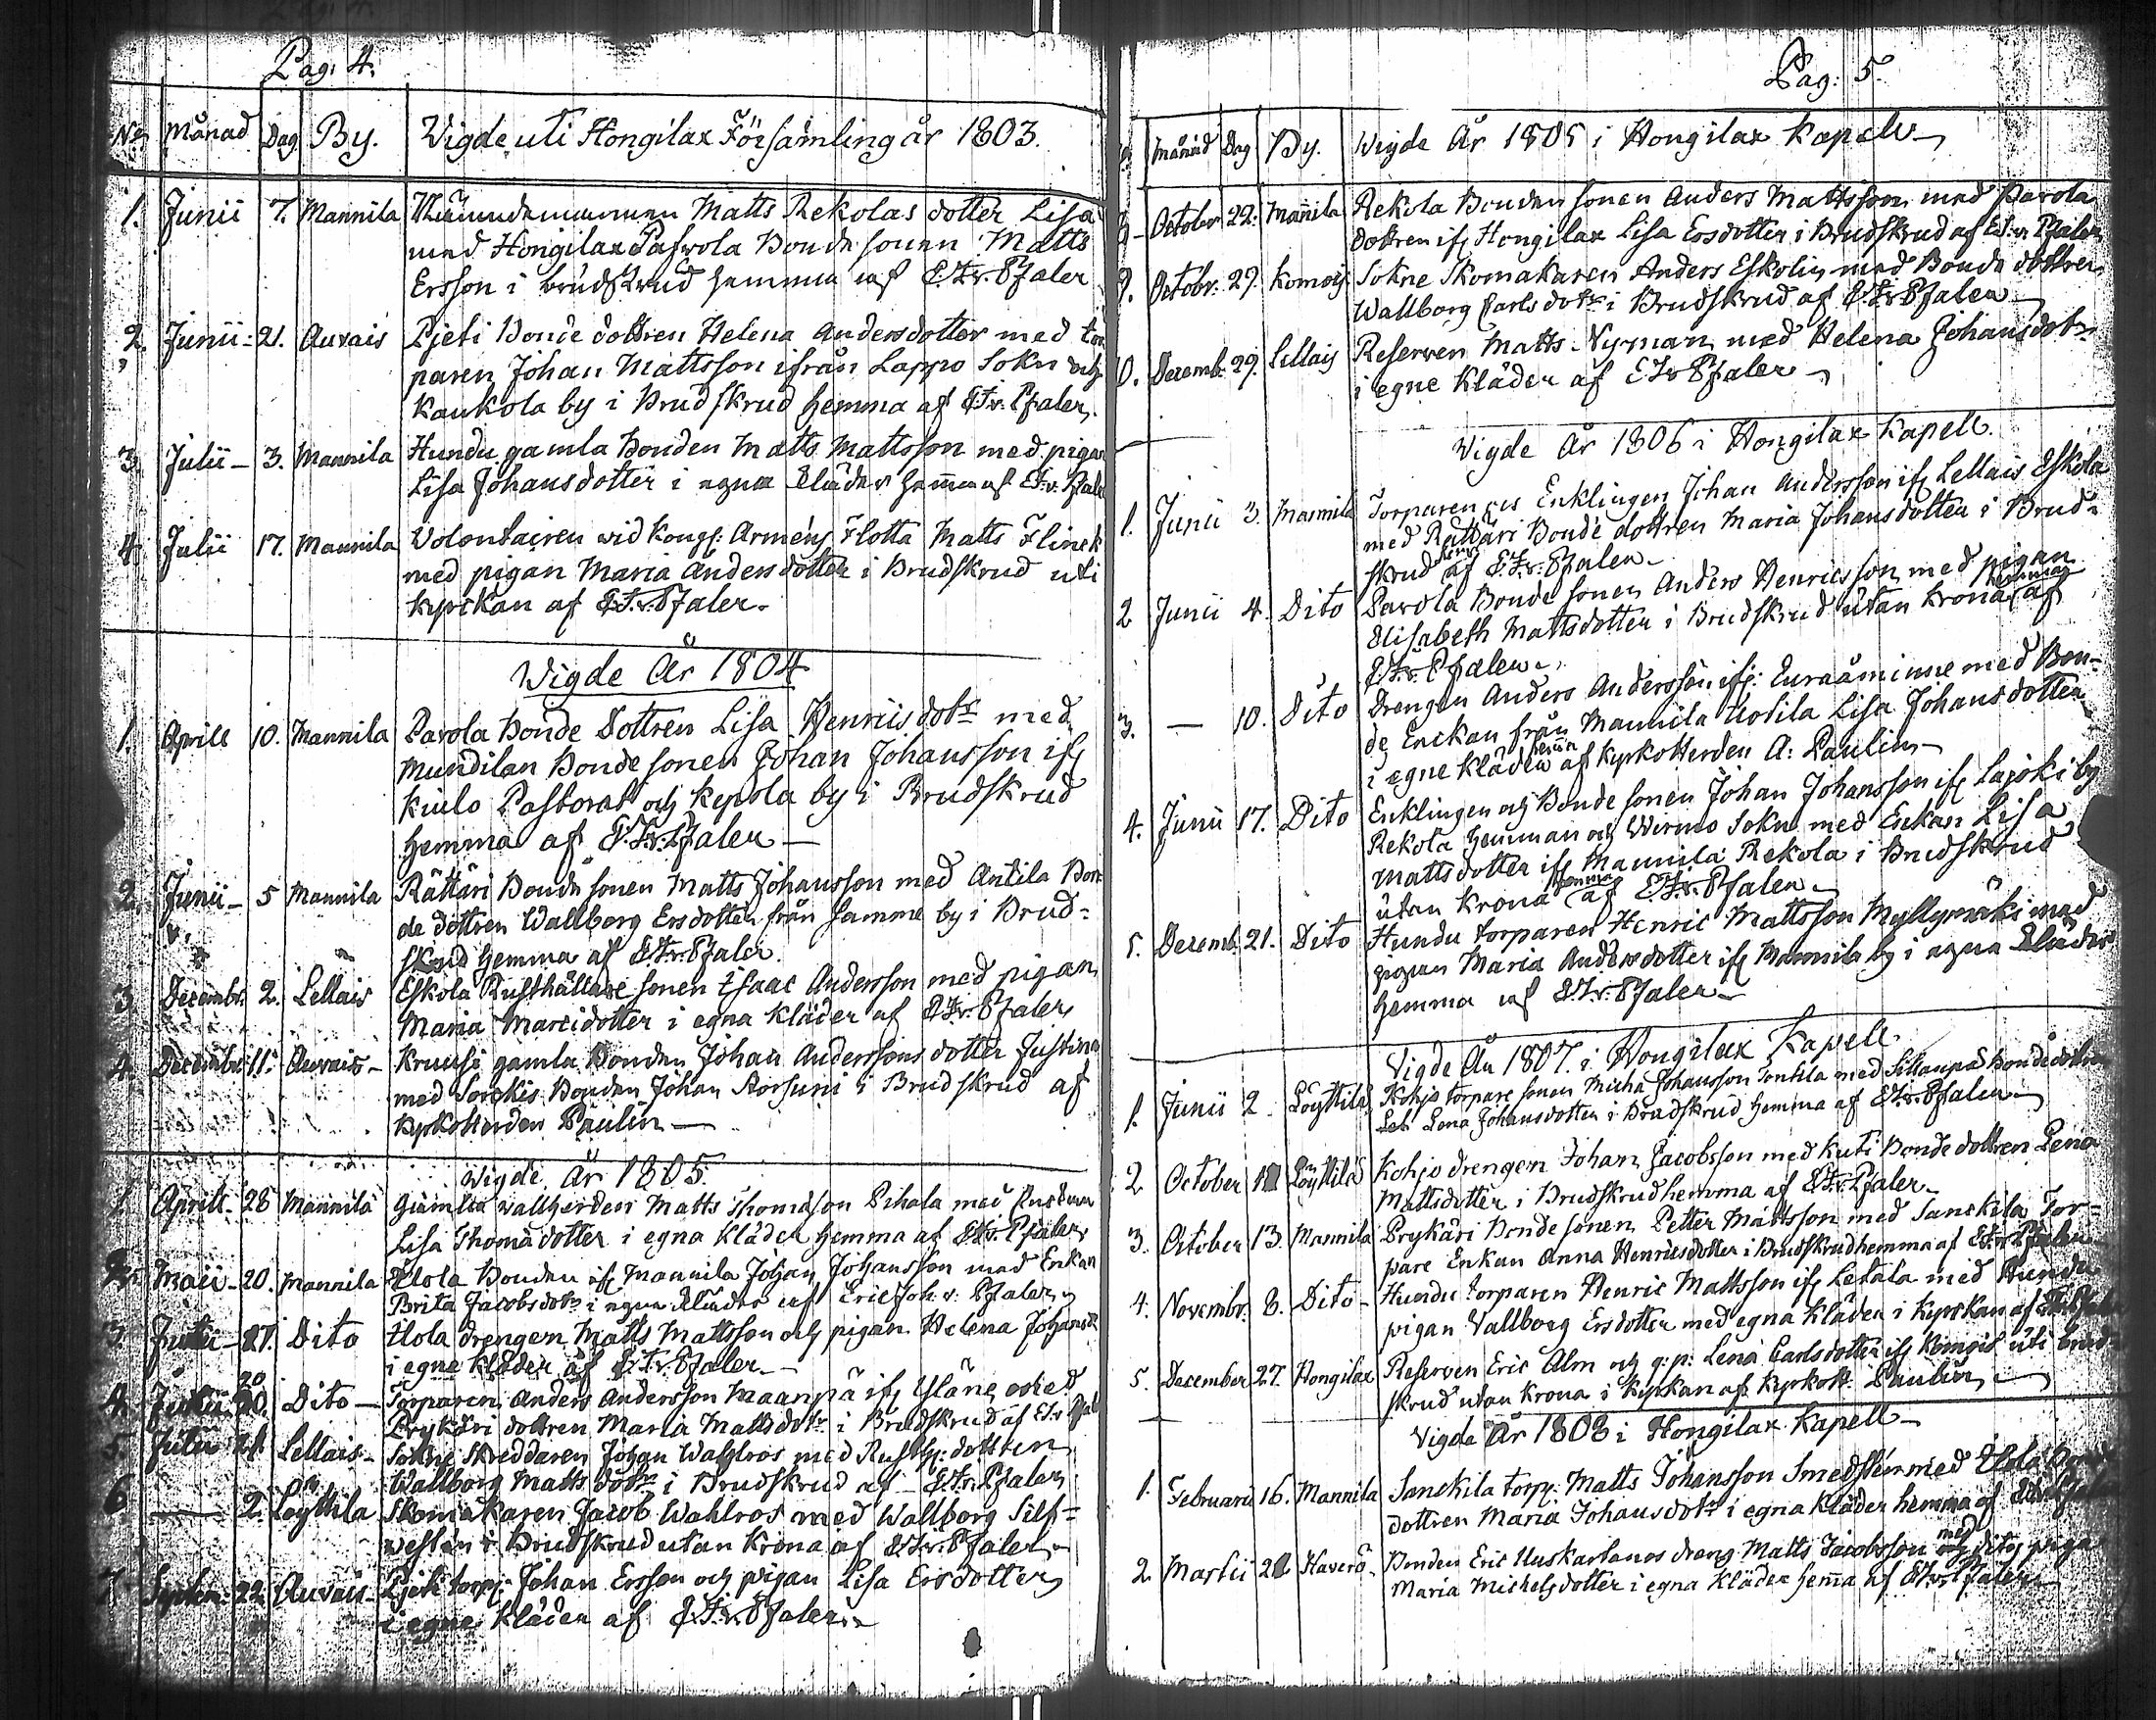 Pag: 4.
No Månad Dag By. Wigde uti Hongilax Församling år 1803.
1. Junii 7. Mannila Nämndemannen Matts Rekolas dotter Lisa
med Hongilax Pafvola Bonde sonen Matts
Ersson i brudskrud hemma af E. J. v. Pfaler
2. Junii 21. Auvais Pjeti Bonde dottren Helena Andersdotter med tor
paren Johan Mattsson ifrån Lappo Sokn och
Kaukola by i Brudskrud hemma af E. J. v. Pfaler.
3. Julii 3. Mannila Hundu gamla Bonden Matts Mattsson med pigan
Lisa Johansdotter i egna kläder hemma af E. J. v. Pfaler
4. Julii 17. Mannila Volontairen vid Kongl: Arméns Flotta Matts Flinck
med pigan Maria Andersdotter i Brudskrud uti
kyrckan af E. J. v. Pfaler.
Wigde År 1804
1. Aprill 10. Mannila Parola Bonde Dottren Lisa Henricsdotr med
Mundilan Bonde sonen Johan Johansson ifr
Kiulo Pastorat och Kepola by i Brudskrud
hemma af E. J. v. Pfaler
2. Junii 5 Mannila Rättäri Bonde sonen Matts Johansson med Antila Bon
de dottren Wallborg Ersdotter från samme by i Brud-
skrud hemma af E. J. v. Pfaler.
3. Decembr. 2. Lellais Eskola Rusthållare sonen Isaac Andersson med pigan
Maria Marcidotter i egna Kläder af E. J. v. Pfaler
4. Decembr: 11. Auvais Kruusi gamla Bonden Johan Anderssons dotter Justina
med Sorckis Bonden Johan Korsuni i Brudskrud af
KyrkoHerden Paulin
Wigde År 1805.
1. Aprill 28 Mannila Gamla wallherden Matts Thomasson Pihala med Enckan
Lisa Thomadotter i egna Kläder hemma af E. J. v. Pfaler
2. Maii 20. Mannila Ilola Bonden ifr Mannila Johan Johansson med Enkan
Brita Jacobsdotr i egna kläder af Eric Joh. v. Pfaler
3. 27. Dito Ilola drengen Matts Mattsson och pigan Helena Johansdr
i egne kläder af E. J. v. Pfaler
4. 20. Dito Torparen Anders Andersson Maanpä ifr Yläne med
Prykäri dottren Maria Mattsdotr i Brudskrud af E. J. v. Pfal
5. Julii 21. Lellais Sokne Skreddaren Johan Wahlros med Rusth: dottren
Wallborg Matts dotr i Brudskrud af E. J. v. Pfaler
6 2. Löyttila Skomakaren Jacob Wahlros med Wallborg Silf-
vesten i Brudskrud utan Krona af E. J. v. Pfaler
7 Septem: 22 Auvais Pjeti torp: Johan Ersson och pigan Lisa Ersdotter
i egne Kläder af E. J. v. Pfaler.
Pag: 5.
Månad Dag By. Wigde År 1805 i Hongilax Kapell
8 October 22. Mannila Rekola Bonden sonen Anders Mattsson med Parola
dottren ifr Hongilax Lisa Ersdotter i Brudskrud af E. J. v. Pfaler
9. Octobr: 29. Komois Sokne Skomakaren Anders Eskolin med Bonde dottren
Wallborg Carls dotr i Brudskrud af E. J. v. Pfaler
10. Decembr. 29. Lellais Reserven Matts Nyman med Helena Johansdotr
i egne Kläder af E. J. v. Pfaler
Wigde År 1806 i Hongilax Kapell.
1. Junii 3. Mannila Torparen Enklingen Johan Andersson ifr Lellais Eskola
med Rättäri Bonde dottren Maria Johansdotter i Brud-
skrud hema af E. J. v. Pfaler
2 Junii 4. Dito Parola Bonde sonen Anders Henricsson med pigan
Elisabeth Mattsdotter i Brudskrud utan Krona hemma af
E. J. v. Pfaler
3. — 10. Dito Drengen Anders Andersson ifr: Euraåminne med Bon-
de Enckan från Mannila Uotila Lisa Johansdotter
i egne Kläder hemma af KyrkoHerden A: Paulin
4. Junii 17. Dito Enklingen och Bonde sonen Johan Johansson ifr Lajoki by
Rekola hemman och Wirmo Sokn med Enkan Lisa
Mattsdotter ifr Mannila Rekola i Brudskrud
utan Krona hemma af E. J. v. Pfaler
5. Decemb. 21. Dito Hundu torparen Henric Mattsson Myllymäki med
pigan Maria Andersdotter ifr Mannila by i egna kläder
hemma af E. J. v. Pfaler
Vigde År 1807. i Hongilax Kapell
1. Junii 2 Löyttilä Kohjo torpare sonen Micha Johansson Tontila med Sillanpä Bonde dottren
Lena Johansdotter i Brudskrud hemma af E. J. v. Pfaler
2 October Löyttilä Kohjo drengen Johan Jacobsson med Kuti Bonde dottren Lena
Mattsdotter i Brudskrud hemma af E. J. v. Pfaler
3. October 13. Mannila Prykäri Bonde sonen Petter Mattsson med Sanckila Tor-
pare Enkan Anna Henricsdotter i Brudskrud hemma af E. J. v. Pfaler
4. Novembr: 8. Dito Hundu torparen Henric Mattsson ifr Letala med Hundu
pigan Vallborg Ersdotter med egna kläder i kyrkan af
5. December 27. Hongilax Reserven Eric Alm och q: p: Lena Carlsdotter ifr Komois uti brud-
skrud utan Krona i Kyrkan af Kyrkoh. Paulin
Vigde År 1808 i Hongilax Kapell
1. Februarii 16. Mannila Sanckila torp: Matts Johansson Smedsten med Ilola
dottren Maria Johansdotr i egna Kläder hemma af
2 Martii Haverö Bonden Eric Uuskartanos dreng Matts Jacobsson med dito piga
Maria Michelsdotter i egna Kläder hema af E. J. v. Pfaler